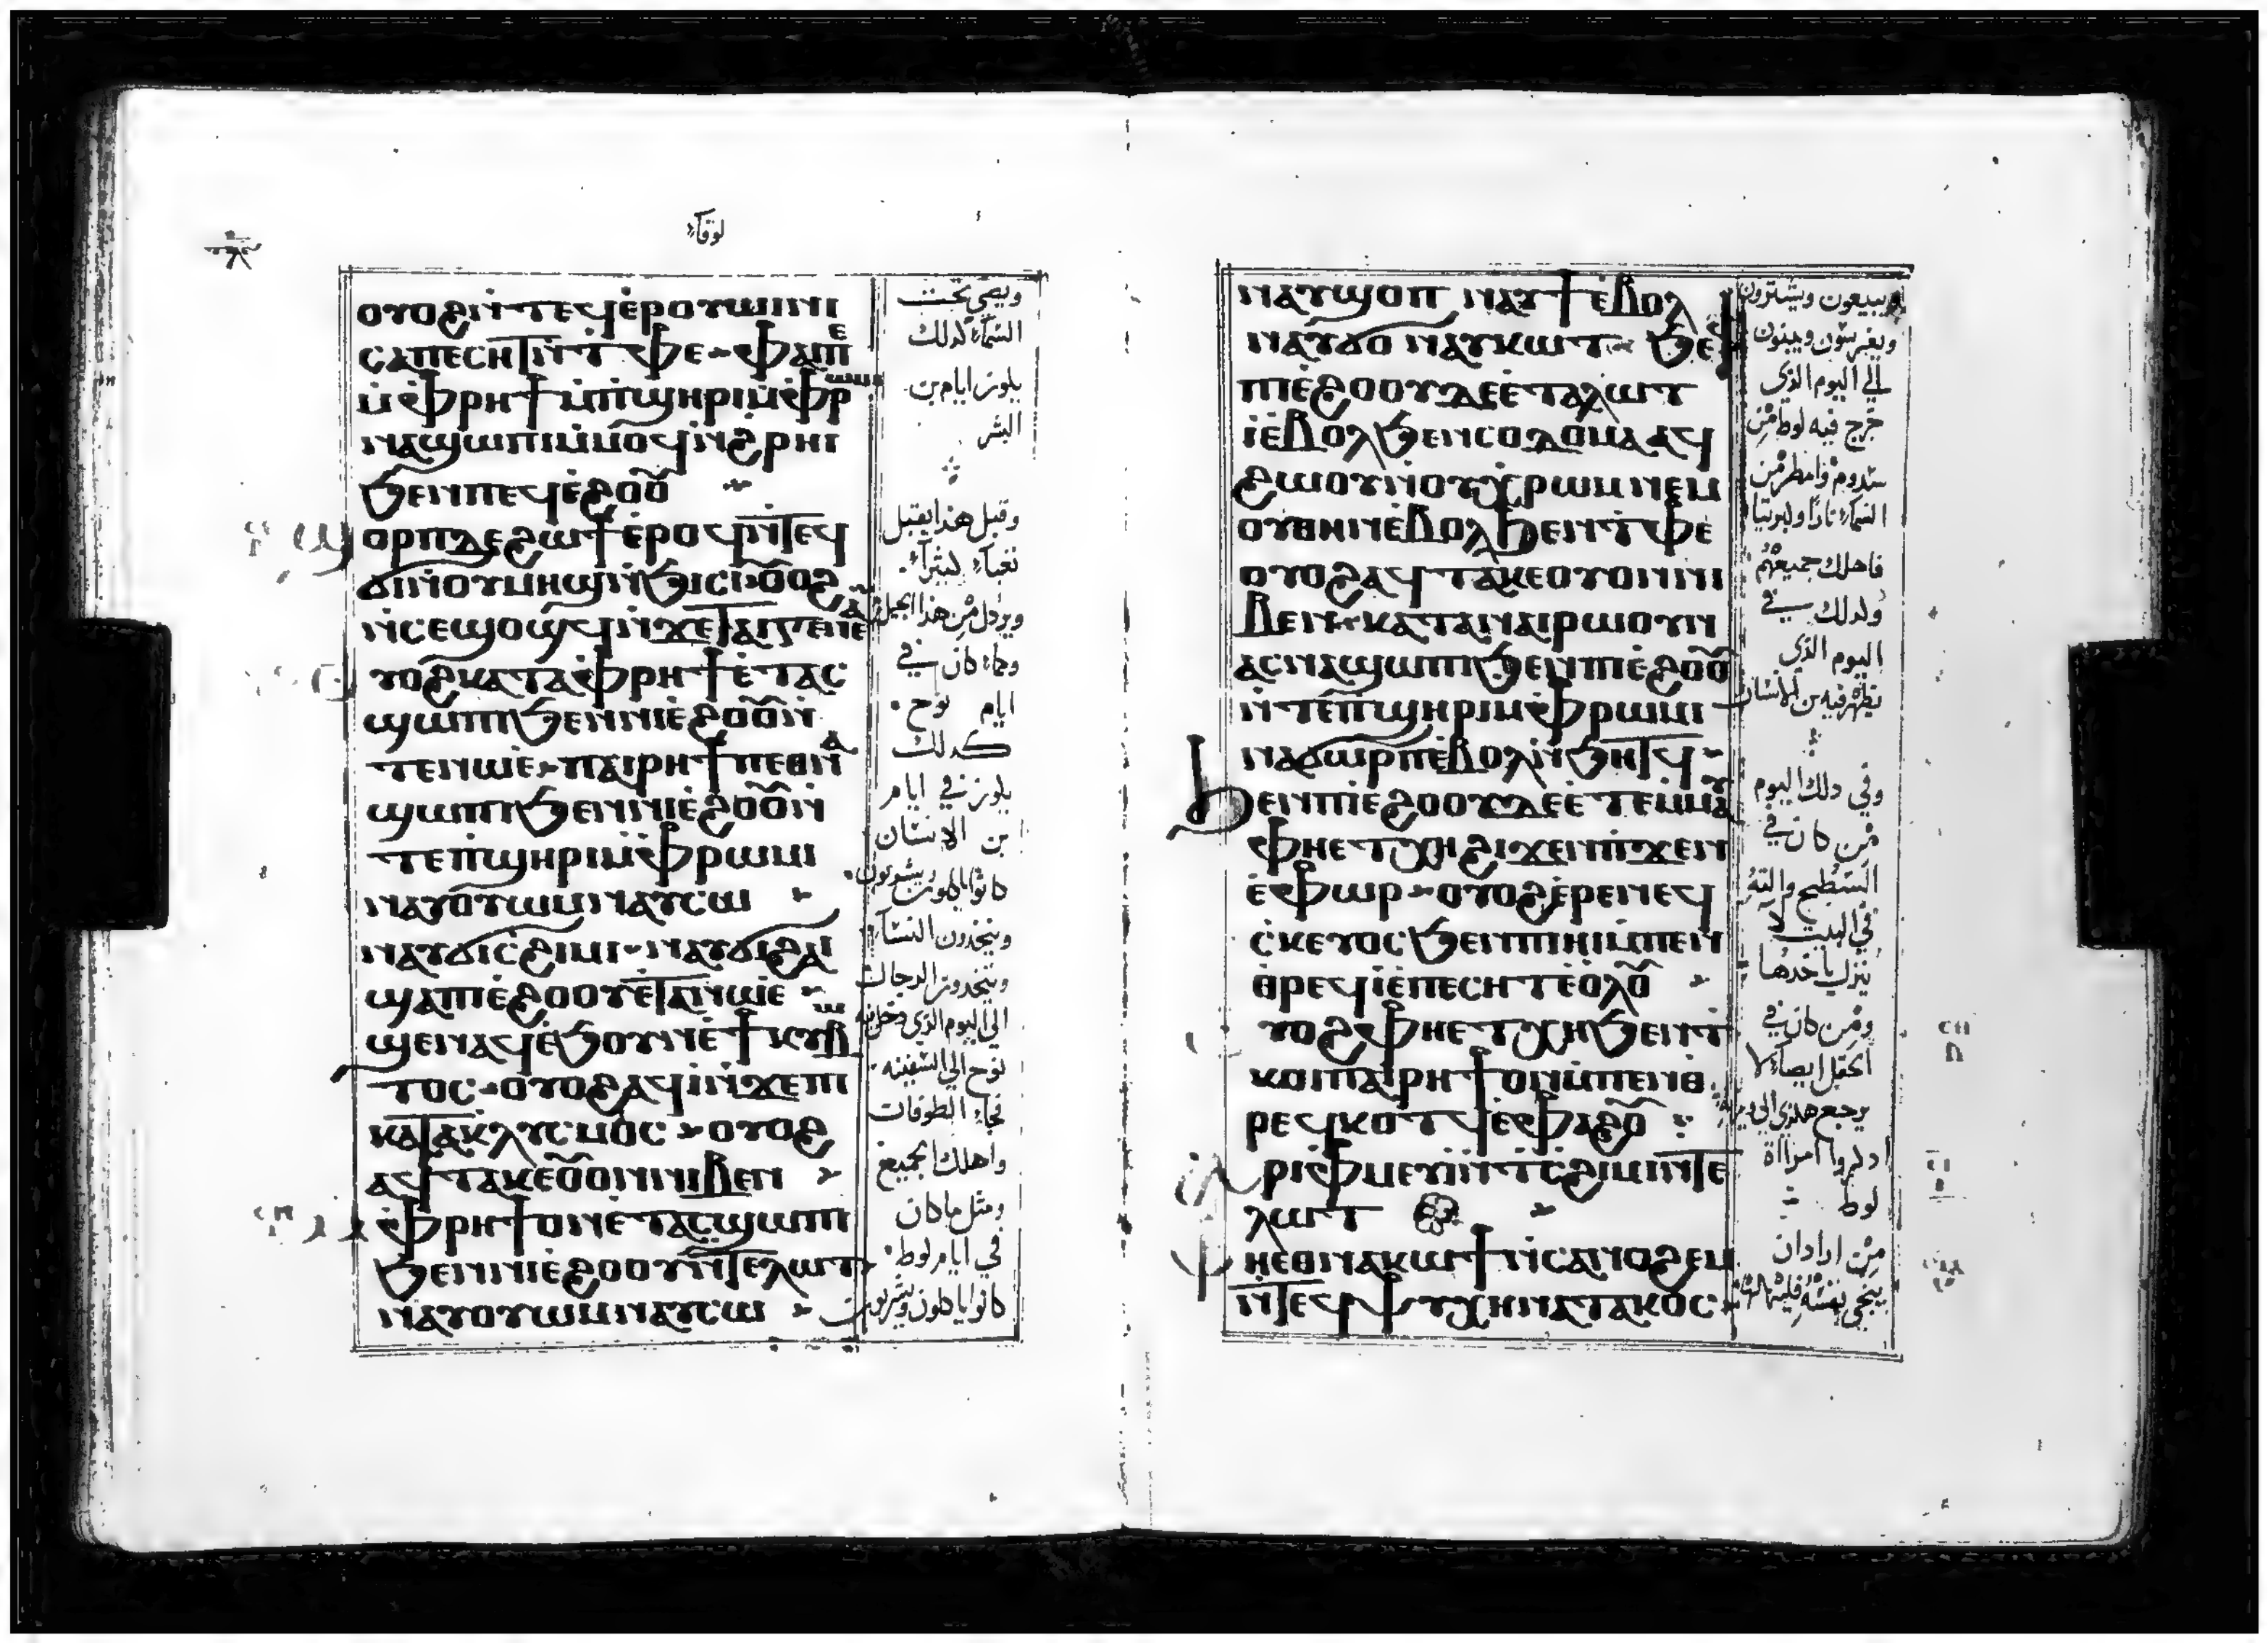 لوقا
ⲟⲩⲟϩⲛ̇ⲧⲉϥⲉ̇ⲣⲟⲩⲱⲓⲛⲓ
ⲥⲁⲡⲉⲥⲏⲧⲛ̇ⲧⲫⲉ ⲫⲁⲡⲉ
ⲙ̇ⲫⲣⲏϯⲙ̇ⲡϣⲏⲣⲓⲙ̇ⲫⲣⲱⲙⲓ
ⲛⲁϣⲱⲡⲓⲙ̇ⲙⲟϥⲛ̇ϩⲣⲏⲓ
ϧⲉⲛⲡⲉϥⲉ̇ϩⲟⲟⲩ
ϣⲟⲣⲡⲇⲉϩⲱϯⲉ̇ⲣⲟϥⲛ̇ⲧⲉϥ
ϭⲓⲛ̇ⲟⲩⲙⲏϣⲛ̇ϧⲓⲥⲓⲟⲩⲟϩ
ⲛ̇ⲥⲉϣⲟϣϥⲛ̇ϫⲉⲧⲁⲓⲅⲉⲛⲉⲁ̇
ⲟⲩⲟϩⲕⲁⲧⲁⲫⲣⲏϯⲉ̇ⲧⲁⲥ
ϣⲱⲡⲓϧⲉⲛⲛⲓⲉ̇ϩⲟⲟⲩⲛ̇
ⲧⲉⲛⲱⲉ̇ ⲡⲁⲓⲣⲏϯⲡⲉⲑⲛⲁ
ϣⲱⲡⲓϧⲉⲛⲛⲓⲉ̇ϩⲟⲟⲩⲛ̇
ⲧⲉⲡϣⲏⲣⲓⲙ̇ⲫⲣⲱⲙⲓ
ⲛⲁⲩⲟⲩⲱⲙⲛⲁⲩⲥⲱ
ⲛⲁⲩϭⲓⲥϩⲓⲙⲓ ⲛⲁⲩϭⲓϩⲁⲓ
ϣⲁⲡⲓⲉ̇ϩⲟⲟⲩⲉ̇ⲧⲁⲛⲱⲉ̇
ϣⲉⲛⲁϥⲉ̇ϧⲟⲩⲛⲉ̇ϯⲕⲩⲃⲱ
ⲧⲟⲥ ⲟⲩⲟϩⲁϥⲓ̇ⲛ̇ϫⲉⲡⲓ
ⲕⲁⲧⲁⲕⲗⲩⲥⲙⲟⲥ ⲟⲩⲟϩ
ⲁϥⲧⲁⲕⲉⲟⲩⲟⲛⲛⲓⲃⲉⲛ
ⲙ̇ⲫⲣⲏϯⲟⲛⲉ̇ⲧⲁⲥϣⲱⲡⲓ
ϧⲉⲛⲛⲓⲉ̇ϩⲟⲟⲩⲛ̇ⲧⲉⲗⲱⲧ
ⲛⲁⲩⲟⲩⲱⲙⲛⲁⲩⲥⲱ
ويضي تحت
السماء كذلك
يكون ايام بن
البشر
وقبل هذا يقبل
ويرذل من هذا الجيل
وكما كان في
ايام نوح
كذلك
يكون في ايام
بن الانسان
كانوا ياكلون ويشربون
ويتخذون النساء
ويتخذون الرجال
الى اليوم الذي دخل فيه
نوح الى السفينه
فجاء الطوفان
واهلك الجميع
ومثل ما كان
في ايام لوط
كانوا ياكلون ويشربون
ⲛⲁⲩϣⲟⲡ ⲛⲁⲩϯⲉ̇ⲃⲟⲗ
ⲛⲁⲩϭⲟ ⲛⲁⲩⲕⲱⲧ ϧⲉⲛ
ⲡⲓⲉ̇ϩⲟⲟⲩⲇⲉⲉ̇ⲧⲁⲗⲱⲧ
ⲓ̇ⲉ̇ⲃⲟⲗϧⲉⲛⲥⲟⲇⲟⲙⲁ ⲁϥ
ϩⲱⲟⲩⲛ̇ⲟⲩⲭ̇ⲣⲱⲙⲛⲉⲙ
ⲟⲩⲑⲏⲛⲉ̇ⲃⲟⲗϧⲉⲛⲧⲫⲉ
ⲟⲩⲟϩⲁϥⲧⲁⲕⲉⲟⲩⲟⲛⲛⲓ
ⲃⲉⲛ ⲕⲁⲧⲁⲛⲁⲓⲣⲱⲟⲩⲛ
ⲁⲥⲛⲁϣⲱⲡⲓϧⲉⲛⲡⲓⲉ̇ϩⲟⲟⲩ
ⲛ̇ⲧⲉⲡϣⲏⲣⲓⲙ̇ⲫⲣⲱⲙⲓ
ⲛⲁϭⲱⲣⲡⲉ̇ⲃⲟⲗⲛ̇ϧⲏⲧϥ
ϧⲉⲛⲡⲓⲉ̇ϩⲟⲟⲩⲇⲉⲉ̇ⲧⲉⲙⲙⲁⲩ
ⲫⲏⲉⲧⲭⲏϩⲓϫⲉⲛⲡϫⲉⲛ
ⲉ̇ⲫⲱⲣ ⲟⲩⲟϩⲉ̇ⲣⲉⲛⲉϥ
ⲥⲕⲉⲩⲟⲥϧⲉⲛⲡⲓⲏⲓⲙ̇ⲡⲉⲛ
ⲑⲣⲉϥⲓ̇ⲉ̇ⲡⲉⲥⲏⲧⲉ̇ⲟⲗⲟⲩ
ⲟⲩⲟϩⲫⲏⲉⲧⲭⲏϧⲉⲛⲧ
ⲕⲟⲓⲡⲁⲓⲣⲏϯⲟⲛⲙ̇ⲡⲉⲛⲑ
ⲣⲉϥⲕⲟⲧϥⲉ̇ⲫⲁϩⲟⲩ
ⲁⲣⲓⲫⲙⲉⲩⲓ̇ⲛ̇ⲧⲥϩⲓⲙⲓⲛ̇ⲧⲉ
ⲗⲱⲧ
ⲫⲏⲉⲑⲛⲁⲕⲱϯⲛ̇ⲥⲁⲛⲟϩⲉⲙ
ⲛ̇ⲧⲉϥⲯⲩⲭⲏⲛⲁⲧⲁⲕⲟⲥ
ويبيعون ويشترون
ويغرسون ويبنون
الي اليوم الذي
خرج فيه لوط من
سدوم وامطر من
السماء نارا وكبريتا
فاهلك جميعهم
وكذلك في
اليوم الذي
يظهر فيه بن الانسان
وفي ذلك اليوم
من كان في
السطح والته
في البيت لا
ينزل ياخذها
ومن كان في
الحقل ايضا لا
يرجع هكذي الي ورايه
اذكروا امراة
لوط
من اراد ان
ينجي نفسه فليهلكها